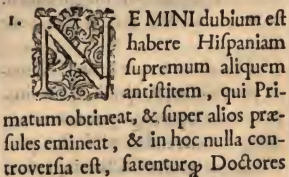 1. NEMINI dubium eſt
habere Hiſpaniam
ſupremum aliquem
antiſtitem, qui Pri-
matum obtineat, & ſuper alios præ-
ſules emineat, & in hoc nulla con-
troverſia eſt, fatenturq; Doctores